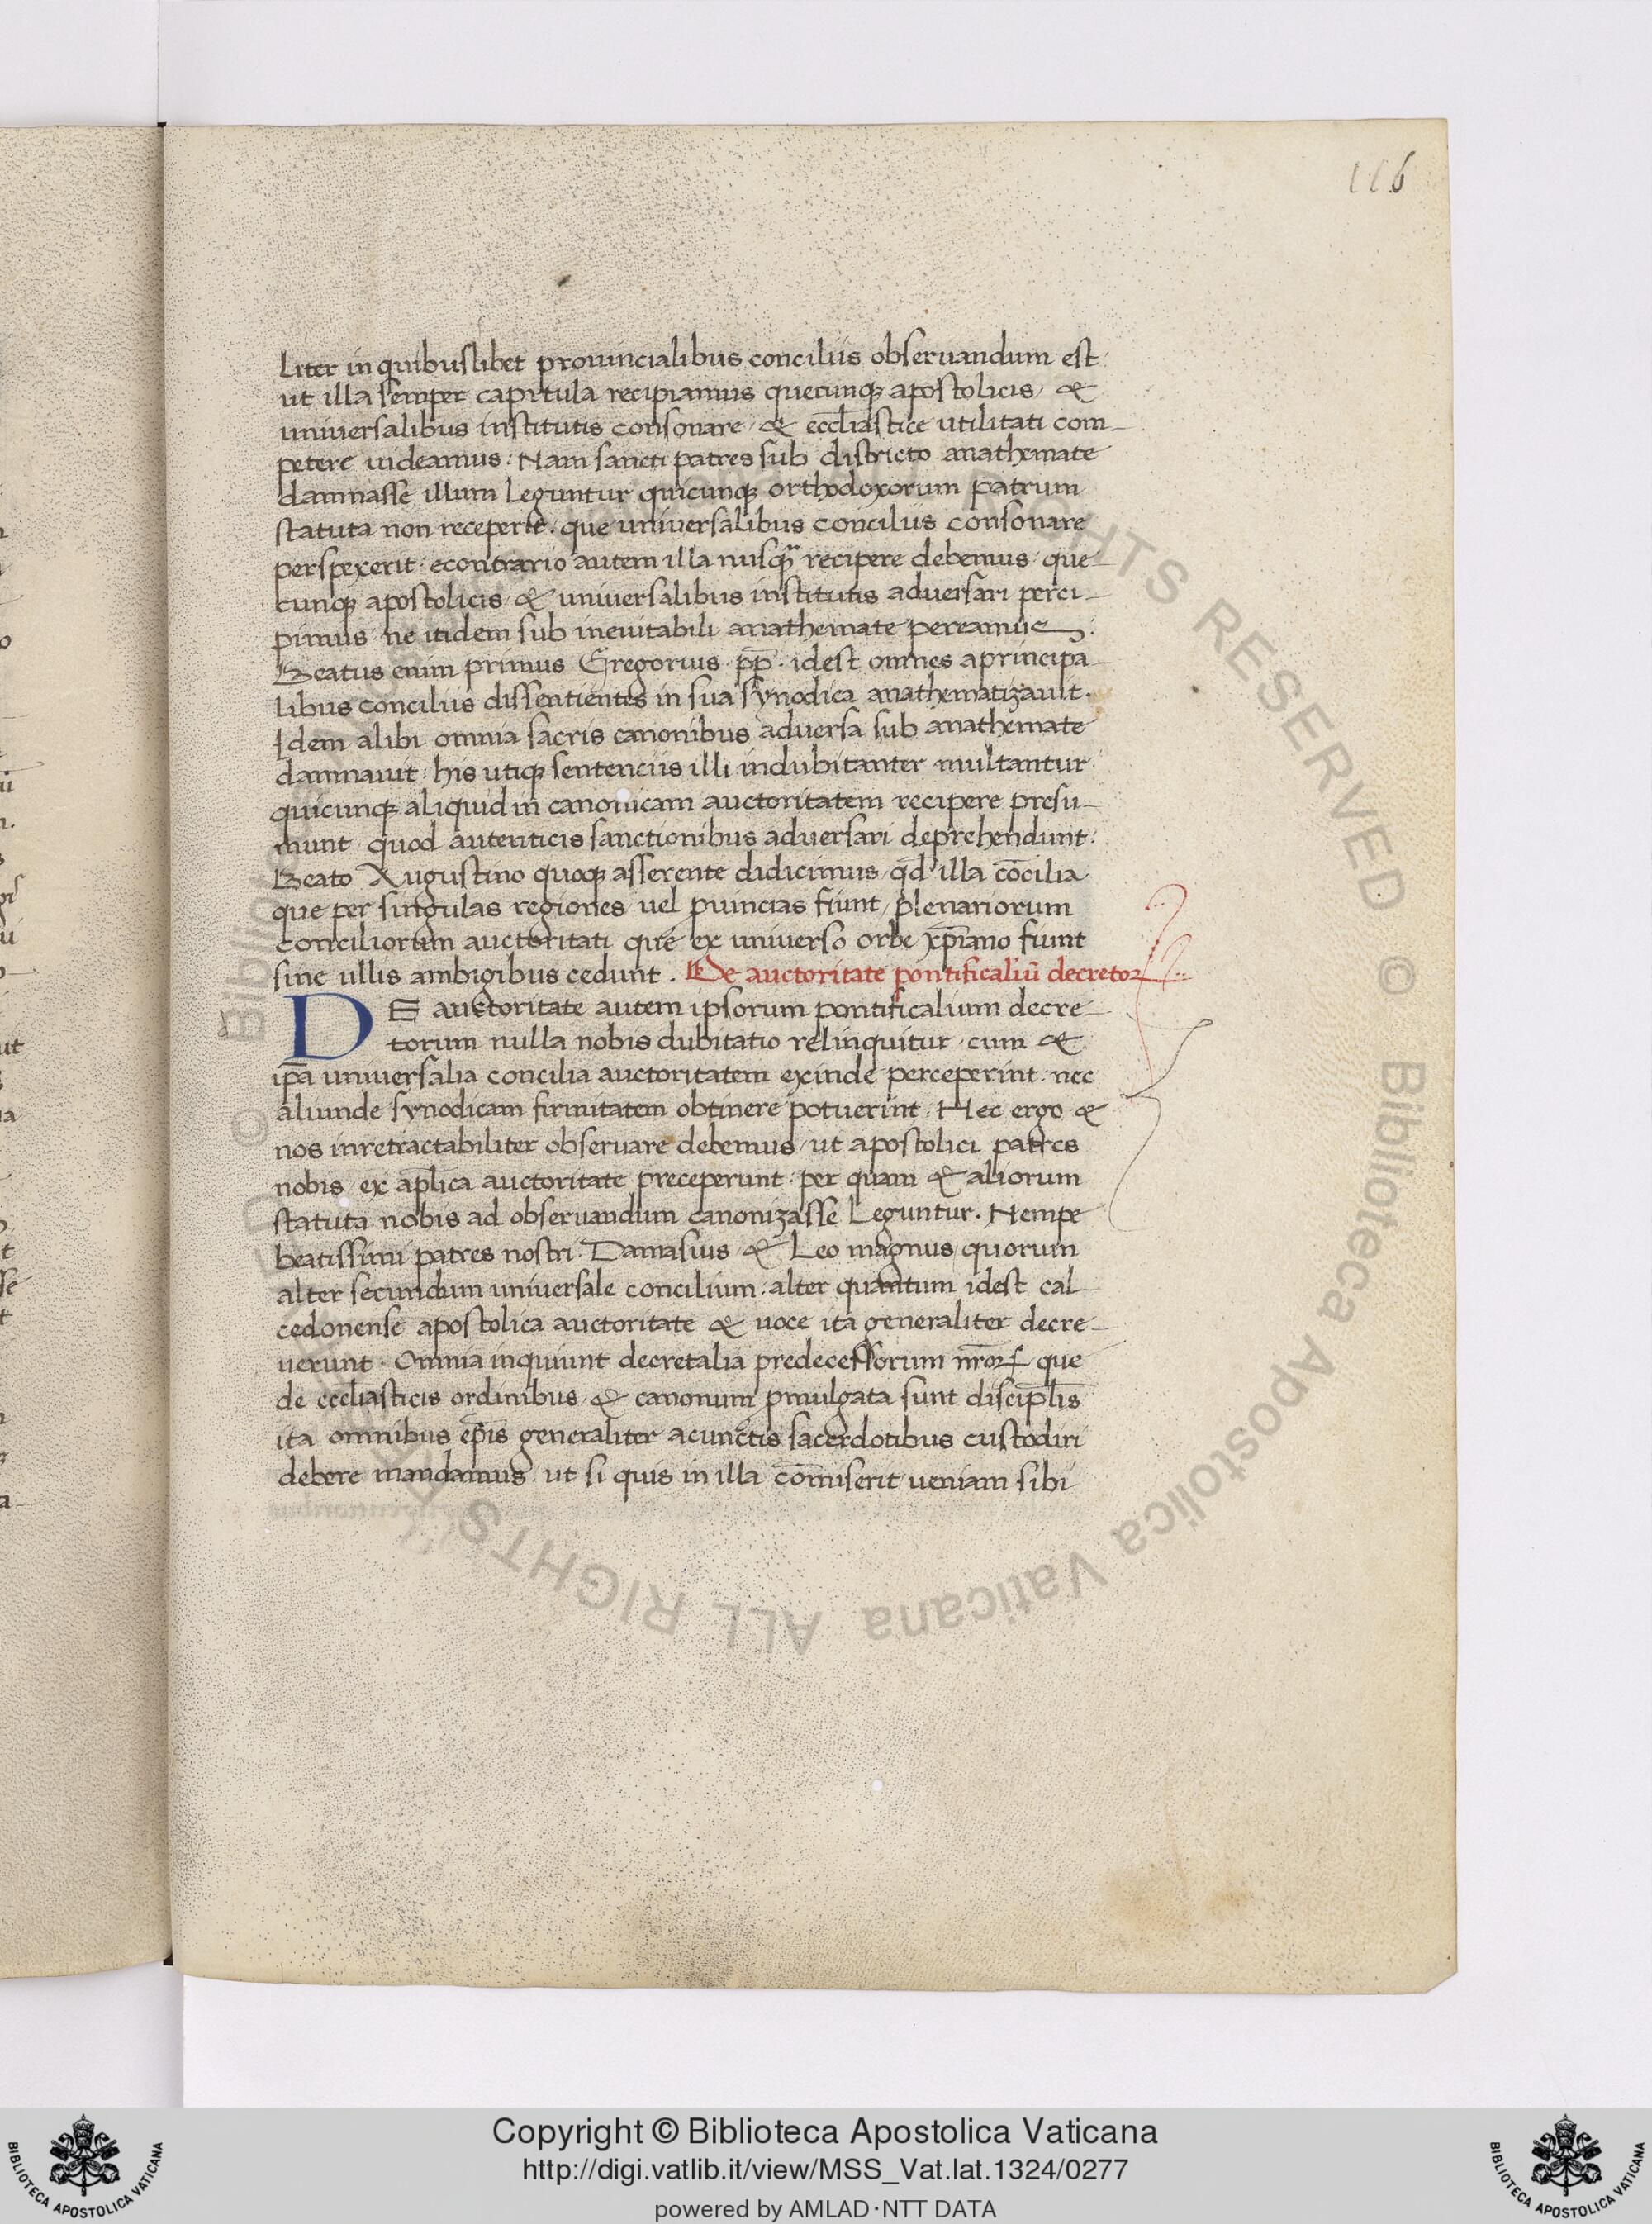 116
liter in quibuslibet prouincialibus conciliis obseruandum est
ut illa semper capitula recipiamus quecunqꝫ apostolicis, &
universalibus institutis consonare, & eccłiastice utilitati com-
petere uideamus: Nam sancti patres sub districto anathemate
damnasse illum leguntur quicunqꝫ orthodoxorum patrum
statuta non receperit, que universalibus conciliis consonare
perspexerit: econtrario autem illa nusqᷓ recipere debemus, que-
cunqꝫ apostolicis & universalibus institutis adversari perci-
pimus, ne itidem sub ineuitabili anathemate pereamus:
Beatus enim primus Gregorius p̄p̄. idest omnes aprincipa-
libus conciliis dissentientes in sua synodica anathematizauit.
Idem alibi omnia sacris canonibus adversa sub anathemate
damnauit: his utiqꝫ sentenciis illi indubitanter multantur
quicunqꝫ aliquid in canonicam auctoritatem recipere presu-
munt, quod autenticis sanctionibus adversari deprehendunt:
Beato Augustino quoqꝫ asserente didicimus, qd̄ illa cōcilia
que per singulas regiones uel puincias fiunt, plenariorum
conciliorum auctoritati que ex universo orbe xp̄iano fiunt
sine ullis ambigibus cedunt. De auctoritate pontificaliū decretoꝝ
DE auctoritate autem ipsorum pontificalium decre-
torum nulla nobis dubitatio relinquitur, cum &
ip̄a universalia concilia auctoritatem exinde perceperint, nec
aliunde synodicam firmitatem obtinere potuerint. Hec ergo &
nos inretractabiliter obseruare debemus, ut apostolici patres
nobis, ex ap̄lica auctoritate preceperunt, per quam & aliorum
statuta nobis ad obseruandum canonizasse leguntur. Nempe
beatissimi patres nostri. Damasus & Leo magnus, quorum
alter secundum universale concilium, alter quantum idest cal-
cedonense apostolica auctoritate & uoce ita generaliter decre-
uerunt. Omnia inquiunt decretalia predecessorum nr̄oꝝ que
de eccłiasticis ordinibus, & canonum pmulgata sunt discipl̄is
ita omnibus ep̄is generaliter acunctis sacerdotibus custodiri
debere mandamus, ut si quis in illa com̄iserit ueniam sibi
© Biblioteca Apostolica Vaticana ALL RIGHTS RESERVED
Copyright © Biblioteca Apostolica Vaticana
http://digi.vatlib.it/view/MSS_Vat.lat.1324/0277
powered by AMLAD·NTT DATA
BIBLIOTECA APOSTOLICA VATICANA
BIBLIOTECA APOSTOLICA VATICANA